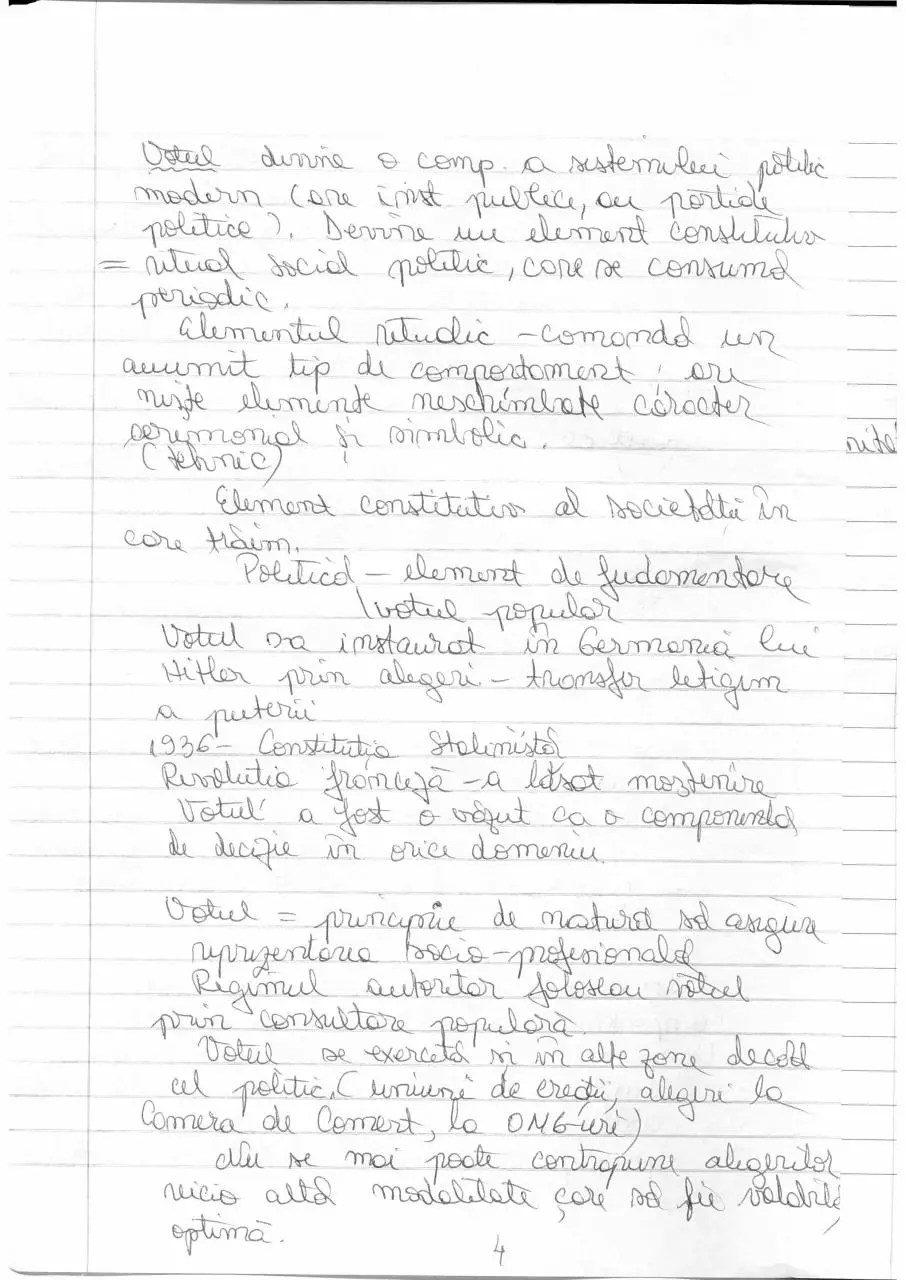 Votul devine o comp. a sistemului politic
modern (are inst publice, au partide
politice). Devine un element constitutiv
= ritual social politic, care se consumă
periodic.
Elementul ritualic - comandă un
anumit tip de comportament, are
niște elemente neschimbate caracter
ceremonial și simbolic.
(tehnic)
nita
Element constitutiv al societății în
care trăim.
Politică - element de fudamentare
votul popular
Votul s-a instaurat în Germania lui
Hitler prin alegeri - transfer letigim
a puterii
1936 - Constituția Stalinistă
Revolutia franceză - a lăsat moștenire
Votul a fost o văzut ca o componentă
de decizie în orice domeniu
Votul = principiu de natură să asigure
reprezentarea socio-profesională
Regimul autoritar foloseau votul
prin consultare populară.
Votul se exercită și în alte zone decât
cel politic, (uniuni de creații, alegeri la
Camera de Comert, la ONG-uri)
Nu se mai poate contrapune alegerilor
nicio altă modalitate care să fie valabilă,
optimă.
4